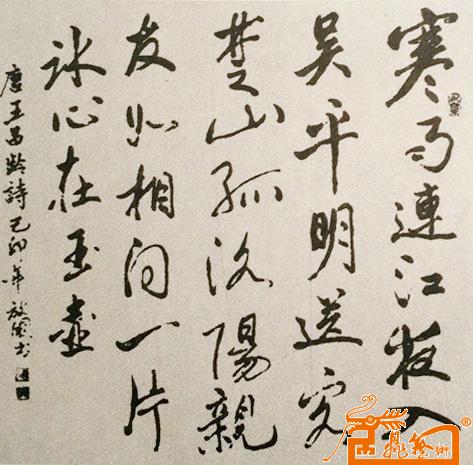 寒雨連江夜入
吳平明送客
楚山孤洛陽親
友如相問一片
冰心在玉壺
唐王昌齡詩己卯年